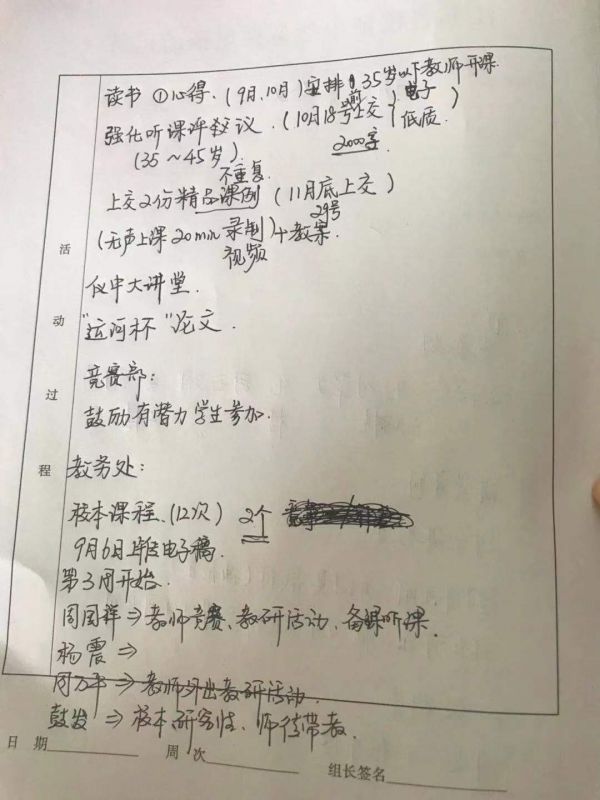 读书 ①心得.(9月、10月)安排 35岁以下教师开课.
强化听课评议.(10月18号前上交){电子 低质.}
(35～45岁). 2000字
不重复.
上交2份精品课例 (11月底上交)
29号
(无声上课20min录制)+教案.
视频
仪中大讲堂.
"运河杯"论文.
竞赛部:
鼓励有潜力学生参加.
教务处:
校本课程.(12次) 2个
9月6日 电子稿.
第3周开始.
周国祥⇒教师竞赛、教研活动、备课听课.
杨震⇒
周万年⇒教师外出教研活动
⇒校本研究性、师徒带教.
活动过程
日 期 周 次 组长签名